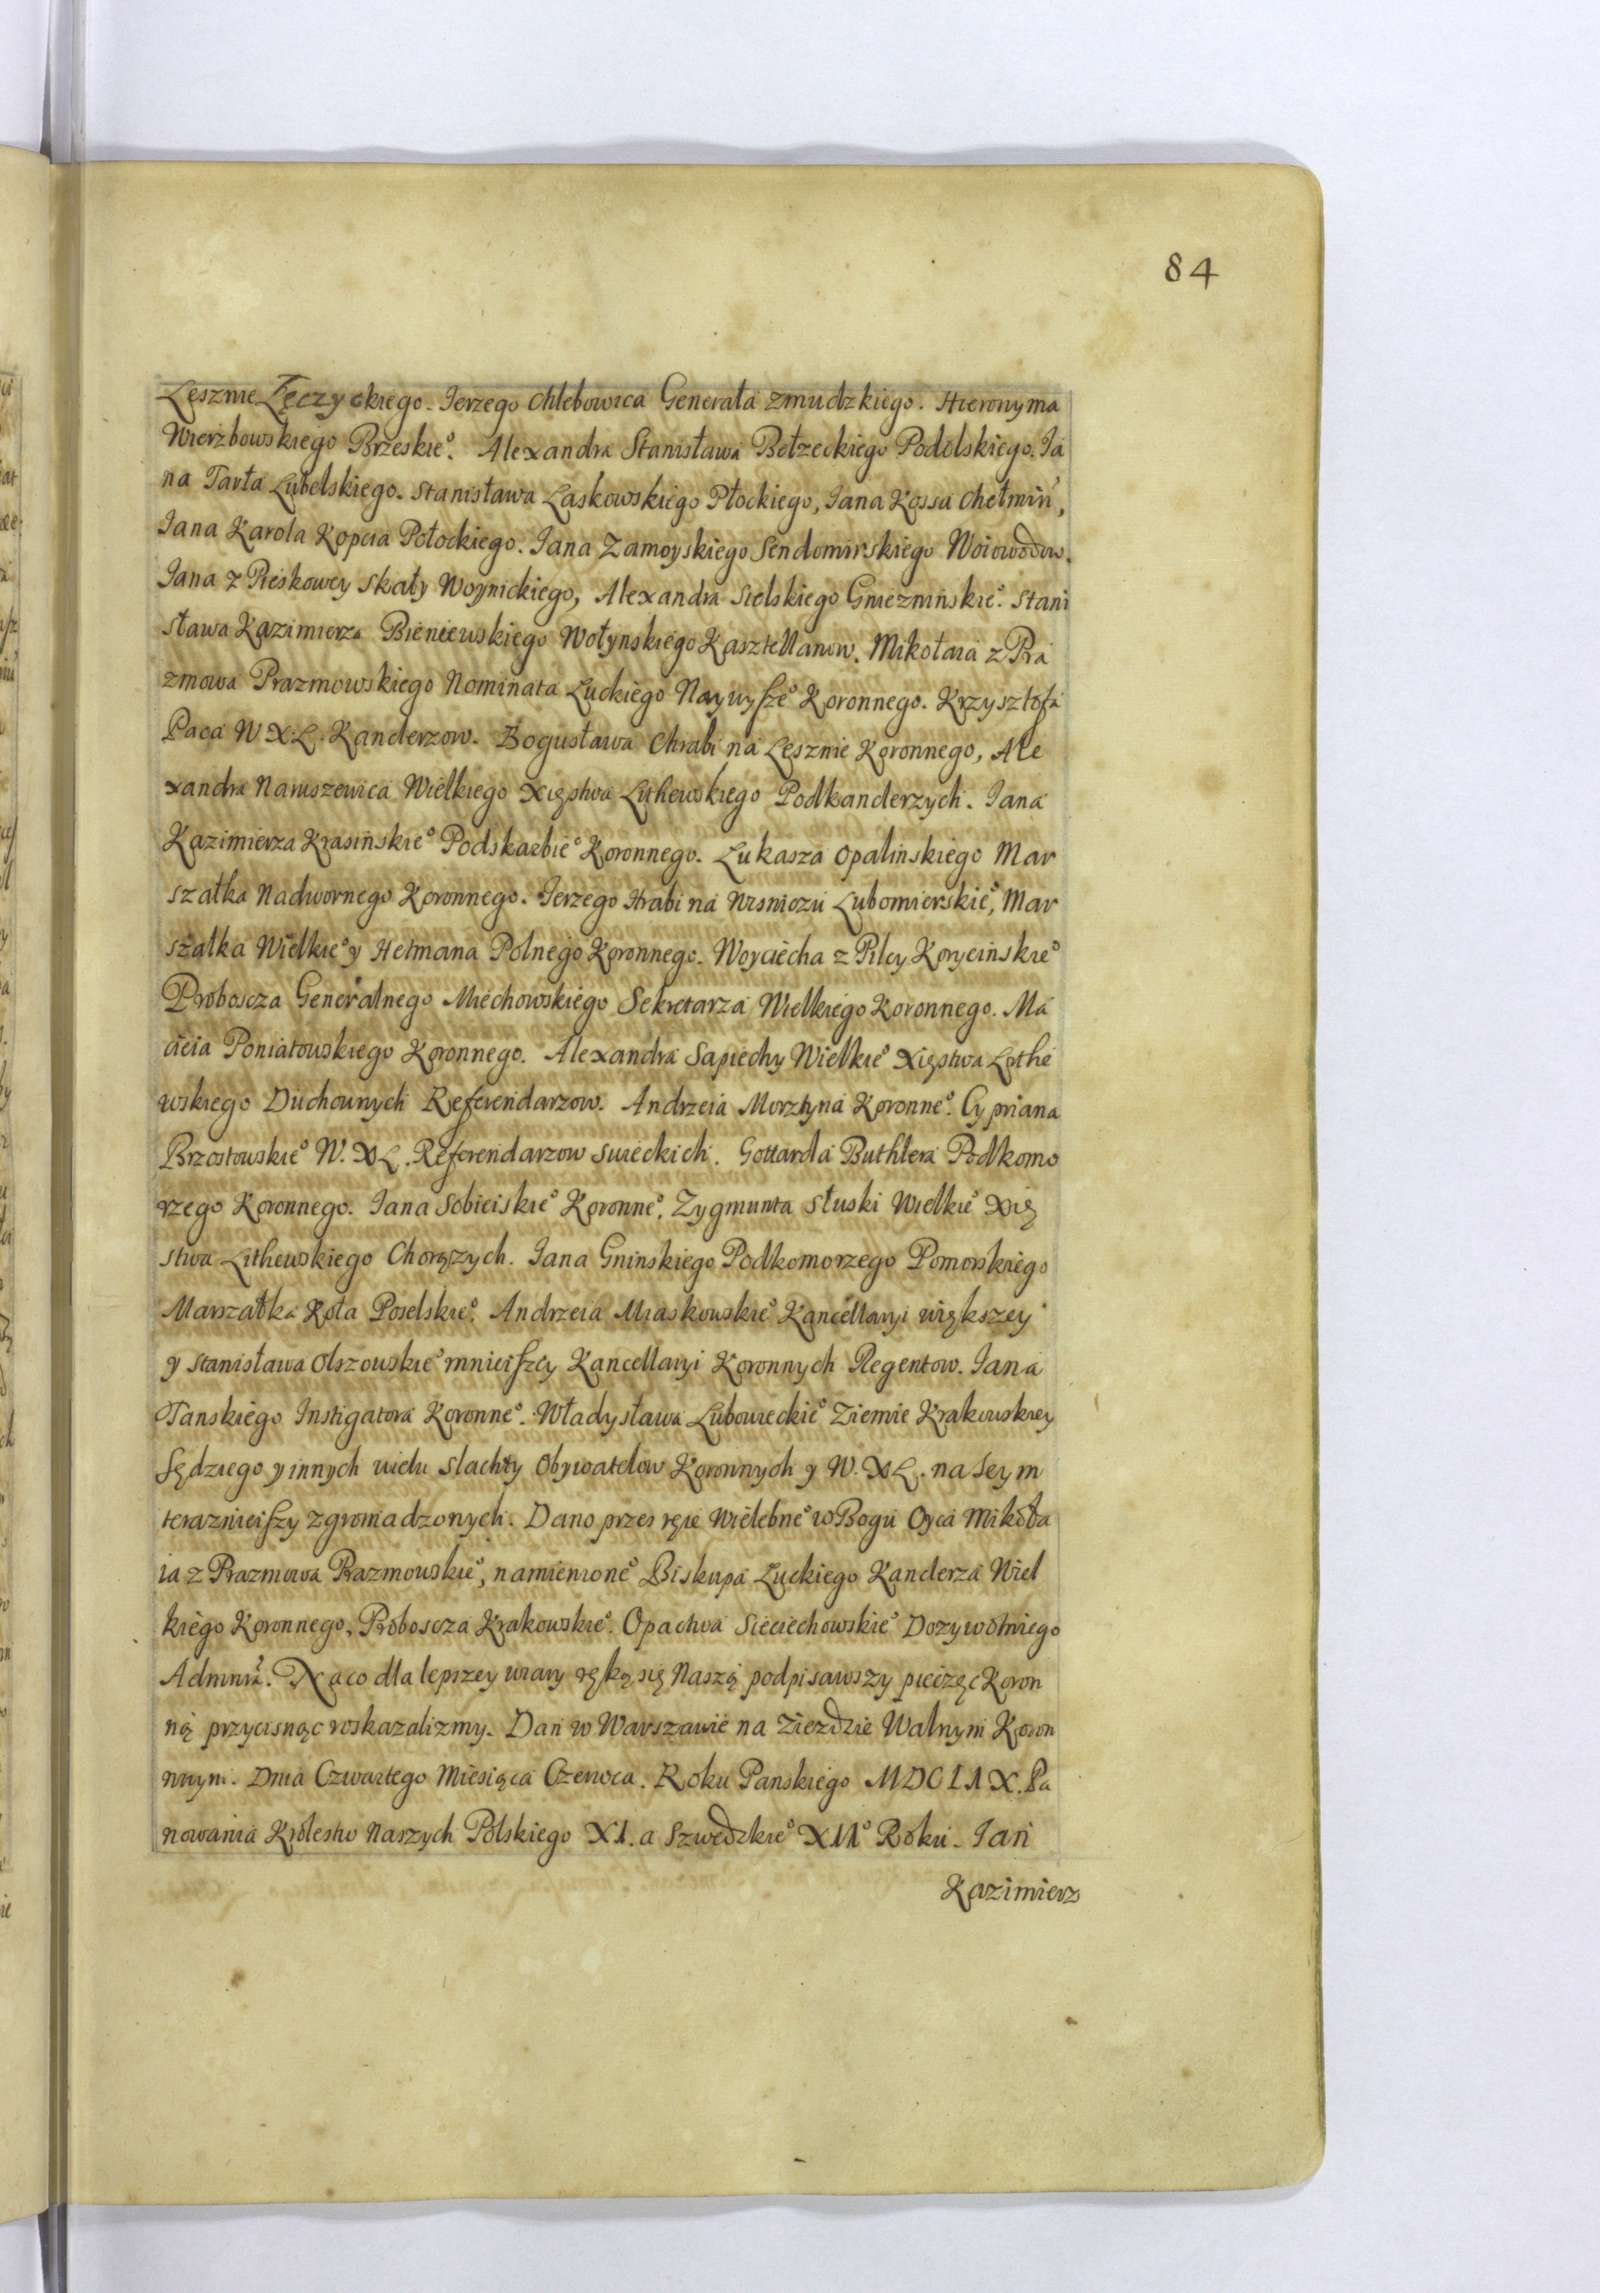 84
Lesznie Łęczyckiego. Ierzego Chlebowica Generała Zmudzkiego. Hieronyma
Wierzbowskiego Brzeskie⁰. Alexandra Stanisława Bełzeckiego Podolskiego. Ia
na Tarła Lubelskiego. Stanisława Laskowskiego Płockiego, Iana Kossa Chełmiń,
Iana Karola Kopcia Połockiego. Iana Zamoyskiego Sendomirskiego Woiowodow.
Iana z Pieskowey Skały Woynickiego, Alexandra Sielskiego Gnieznińskie⁰. Stani
sława Kazimierza Bieniewskiego Wołynskiego Kasztellanow. Mikołaia z Pra
zmowa Prazmowskiego Nominata Luckiego Naywyszse⁰ Koronnego. Krzysztofa
Paca W X. L. Kanclerzow. Bogusława Chrabi na Lesznie Koronnego, Ale
xandra Naruszewica Wielkiego Xięstwa Lithewskiego Podkanclerzych. Iana
Kazimierza Krasińskie⁰ Podskarbie⁰ Koronnego. Lukasza Opalińskiego Mar
szałka Nadwornego Koronnego. Ierzego Hrabi na Wisniczu Lubomierskie⁰, Mar
szałka Wielkie⁰ y Hetmana Polnego Koronnego. Woyciecha z Pilcy Korycińskie⁰
Proboscza Generalnego Miechowskiego Sekretarza Wielkiego Koronnego. Ma
cieia Poniatowskiego Koronnego. Alexandra Sapiechy Wielkie⁰ Xięstwa Lithe
wskiego Duchownych Referendarzow. Andrzeia Morztyna Koronne⁰. Cypriana
Brzostowskie⁰ W. X L. Referendarzow Swieckich. Gottarda Buthlera Podkomo
rzego Koronnego. Iana Sobieiskie⁰ Koronne⁰. Zygmunta Słuski Wielkie⁰ Xię
stwa Lithewskiego Chorązych. Iana Gninskiego Podkomorzego Pomorskiego
Marszałka Koła Poselskie⁰. Andrzeia Miaskowskie⁰ Kancellaryi większey
y Stanisława Olszowskie⁰ mnieiszey Kancellaryi Koronnych Regentow. Iana
Tanskiego Instigatora Koronne⁰. Władysława Lubowieckie⁰ Ziemie Krakowskiey
Sędziego y innych wielu Slachty Obywatelow Koronnych y W. X L. na Seym
teraznieiszy zgromadzonych. Dano przes ręce Wielebne⁰ w Bogu Oyca Mikoła
ia z Prazmowa Prazmowskie⁰, namienione⁰ Biskupa Luckiego Kanclerza Wiel
kiego Koronnego, Proboscza Krakowskie⁰. Opactwa Sieciechowskie⁰ Dozywotniego
Admini. Na co dla lepszey wiary ręką się Naszą podpisawszy pieczęc Koron
ną przycisnąc roskazalizmy. Dan w Warszawie na Ziezdzie Walnym Koron
nnym. Dnia Czwartego Miesiąca Czerwca. Roku Panskiego MDCLIX. Pa
nowania Krolestw Naszych Polskiego XI. a Szwedzkie⁰ XII⁰ Roku. Ian
Kazimierz